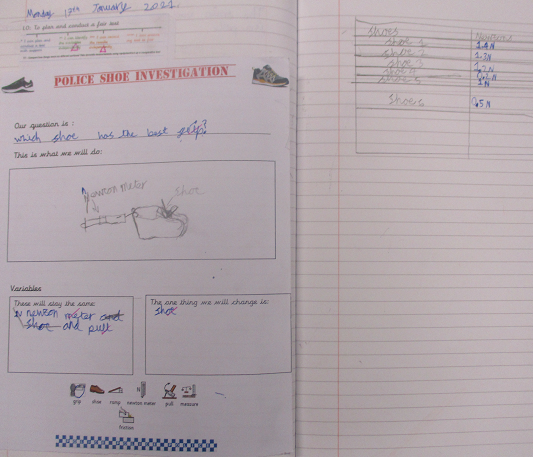 Monday 17th January 2021
LO: To plan and conduct a fair test
POLICE SHOE INVESTIGATION
Our question is :
which shoe has the best grip?
This is what we will do:
Newton meter
Shoe
Variables
These will stay the same:
newton meter and
shoe and pull
The one thing we will change is:
shoe
grip shoe ramp newton meter pull measure
friction
Shoes Newtons
shoe 1 1.4N
shoe 2 1.3N
shoe 3
shoe 4
shoe 5 1N
Shoe 6